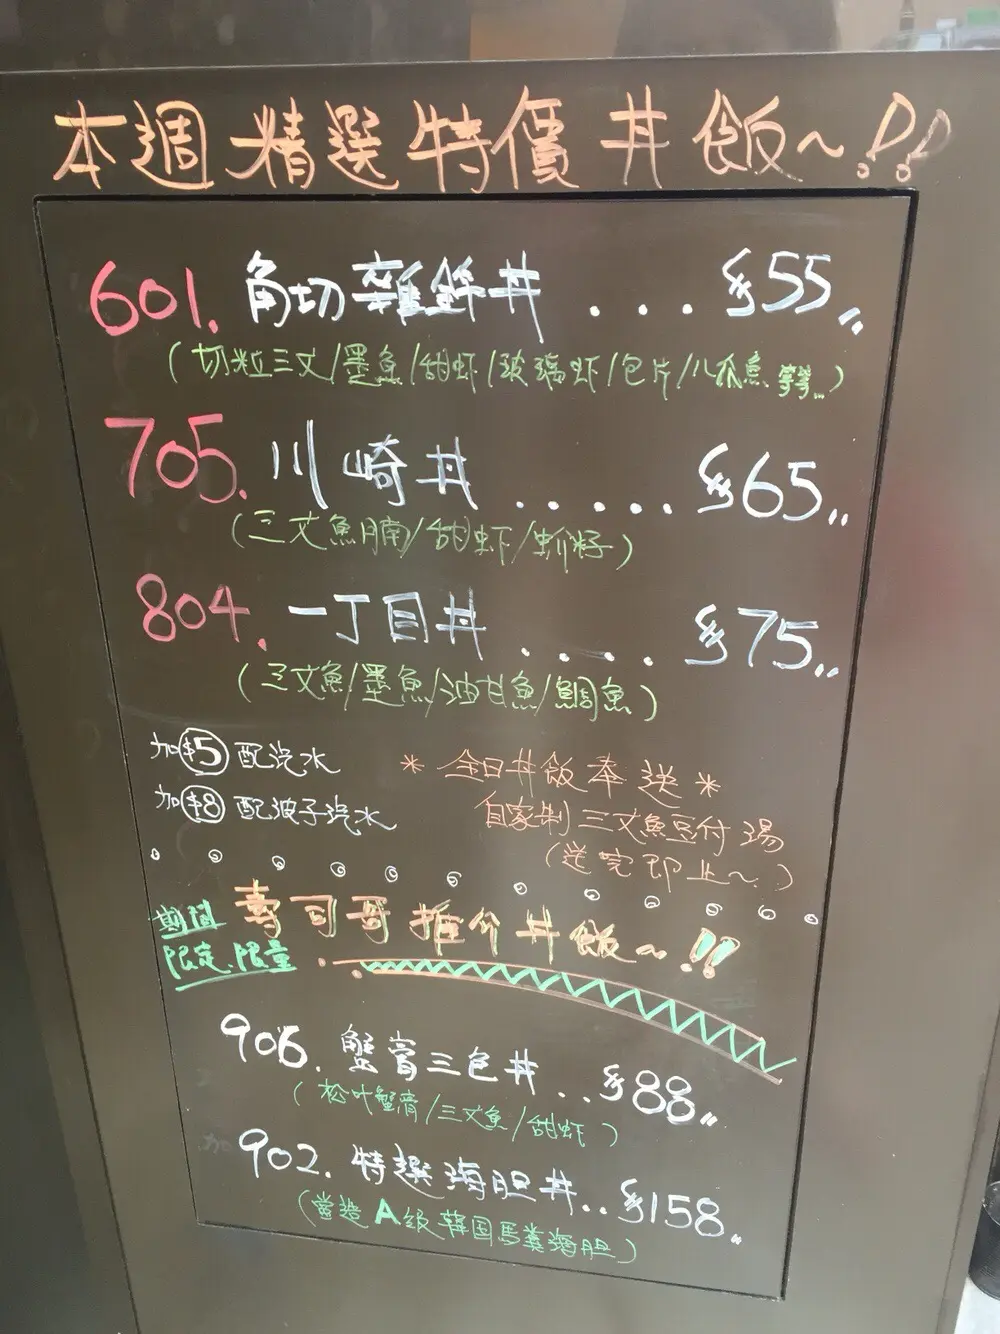 本週精選特價丼飯~!!
601. 角切雜錦丼 ... $55
(切粒三文/墨魚/甜虾/玻璃虾/包片/八爪魚等等...)
705. 川崎丼 ...... $65
(三文魚腩/甜虾/籽)
804. 一丁目丼 ..... $75
(三文魚/墨魚/油甘魚/鯛魚)
加$5 配汽水
加$8 配波子汽水
* 全日丼飯奉送 *
自家制三文魚豆付湯
(送完即止~)
期間
限定.限量
壽司哥推介丼飯~!!
906. 蟹膏三色丼..$88
(松叶蟹膏/三文魚/甜虾)
902. 特選海胆丼..$158
(當造A级韓国馬糞海胆)